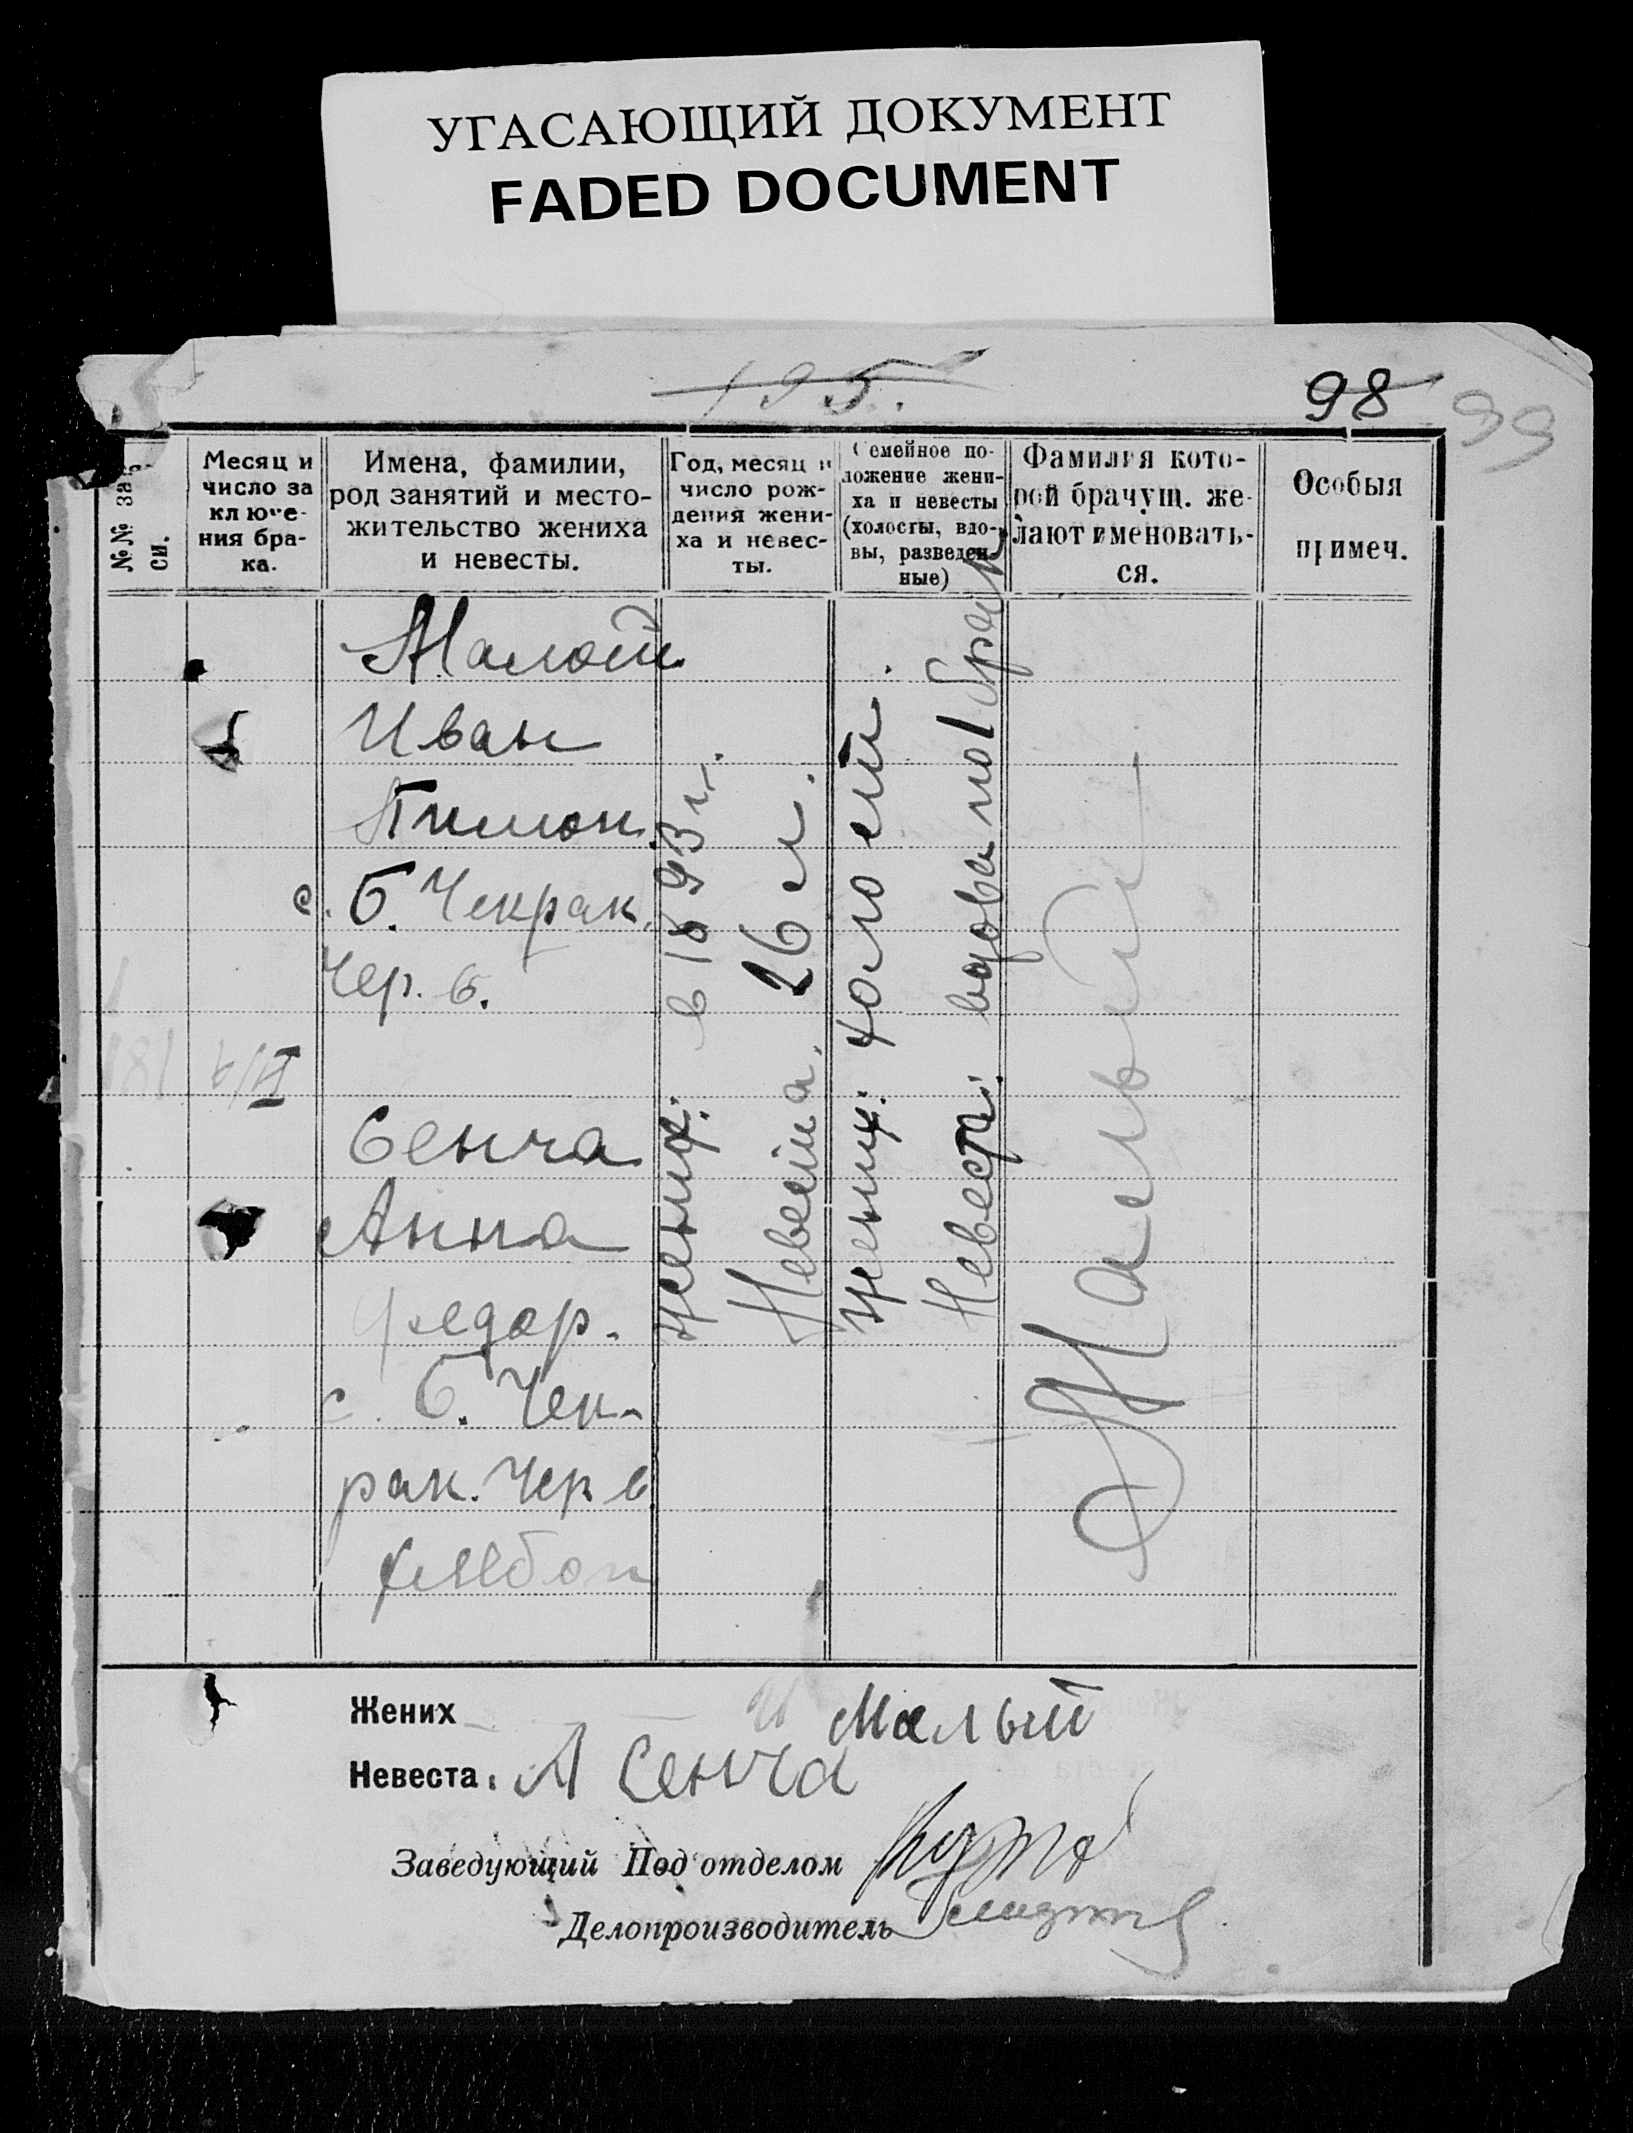 УГАСАЮЩИЙ ДОКУМЕНТ
FADED DOCUMENT
195.
98
99
№№ за
си.
Месяц и
число за
ключе-
ния бра-
ка.
Имена, фамилии,
род занятий и место-
жительство жениха
и невесты.
Год, месяц и
число рож-
дения жени-
ха и невес-
ты.
Семейное по-
ложение жени-
ха и невесты
(холосты, вдо-
вы, разведен-
ные)
Фамилия кото-
рой брачущ. же-
лают именовать-
ся.
Особыя
примеч.
Малой
Иван
Пимон
с. Б. Чекрак.
Чер. в.
Сенча
Анна
федор.
с. Б. Чек-
рак. Чер в
хлебоп
жених: в 1893 г.
Невеста. 26 л.
жених: холостй.
Невеста: вдова по 1 браку
Малый
Жених И Малый
Невеста: А Сенча
Заведующий Под'отделом
Делопроизводитель